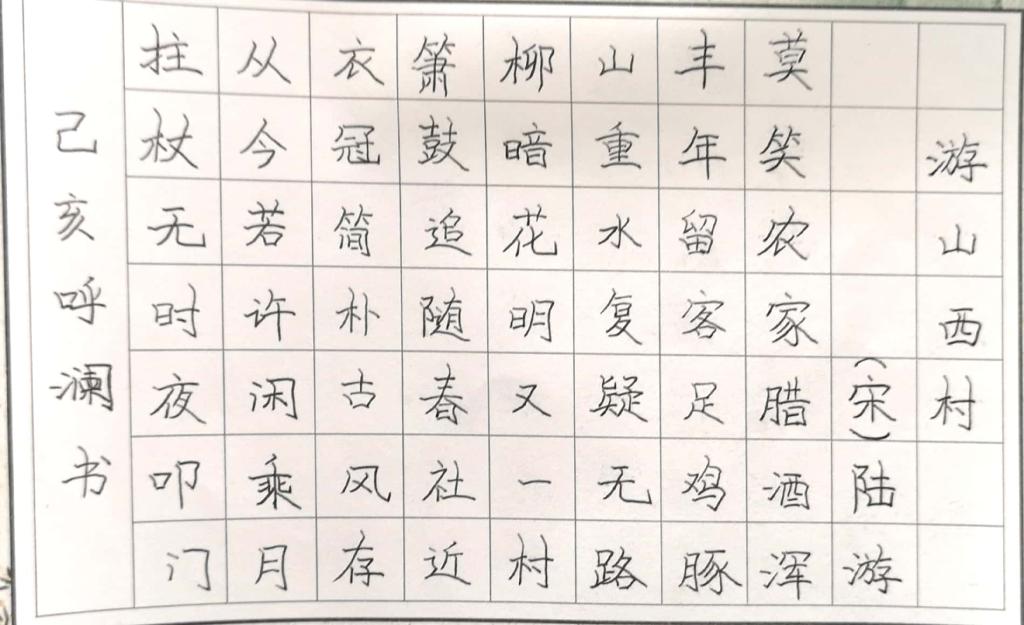 游山西村
（宋）陆游
莫笑农家腊酒浑
丰年留客足鸡豚
山重水复疑无路
柳暗花明又一村
箫鼓追随春社近
衣冠简朴古风存
从今若许闲乘月
拄杖无时夜叩门
己亥呼澜书